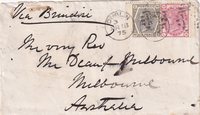 Via Brindisi
75
My very Rev
The Dean of Melbourne
Melbourne
Australia